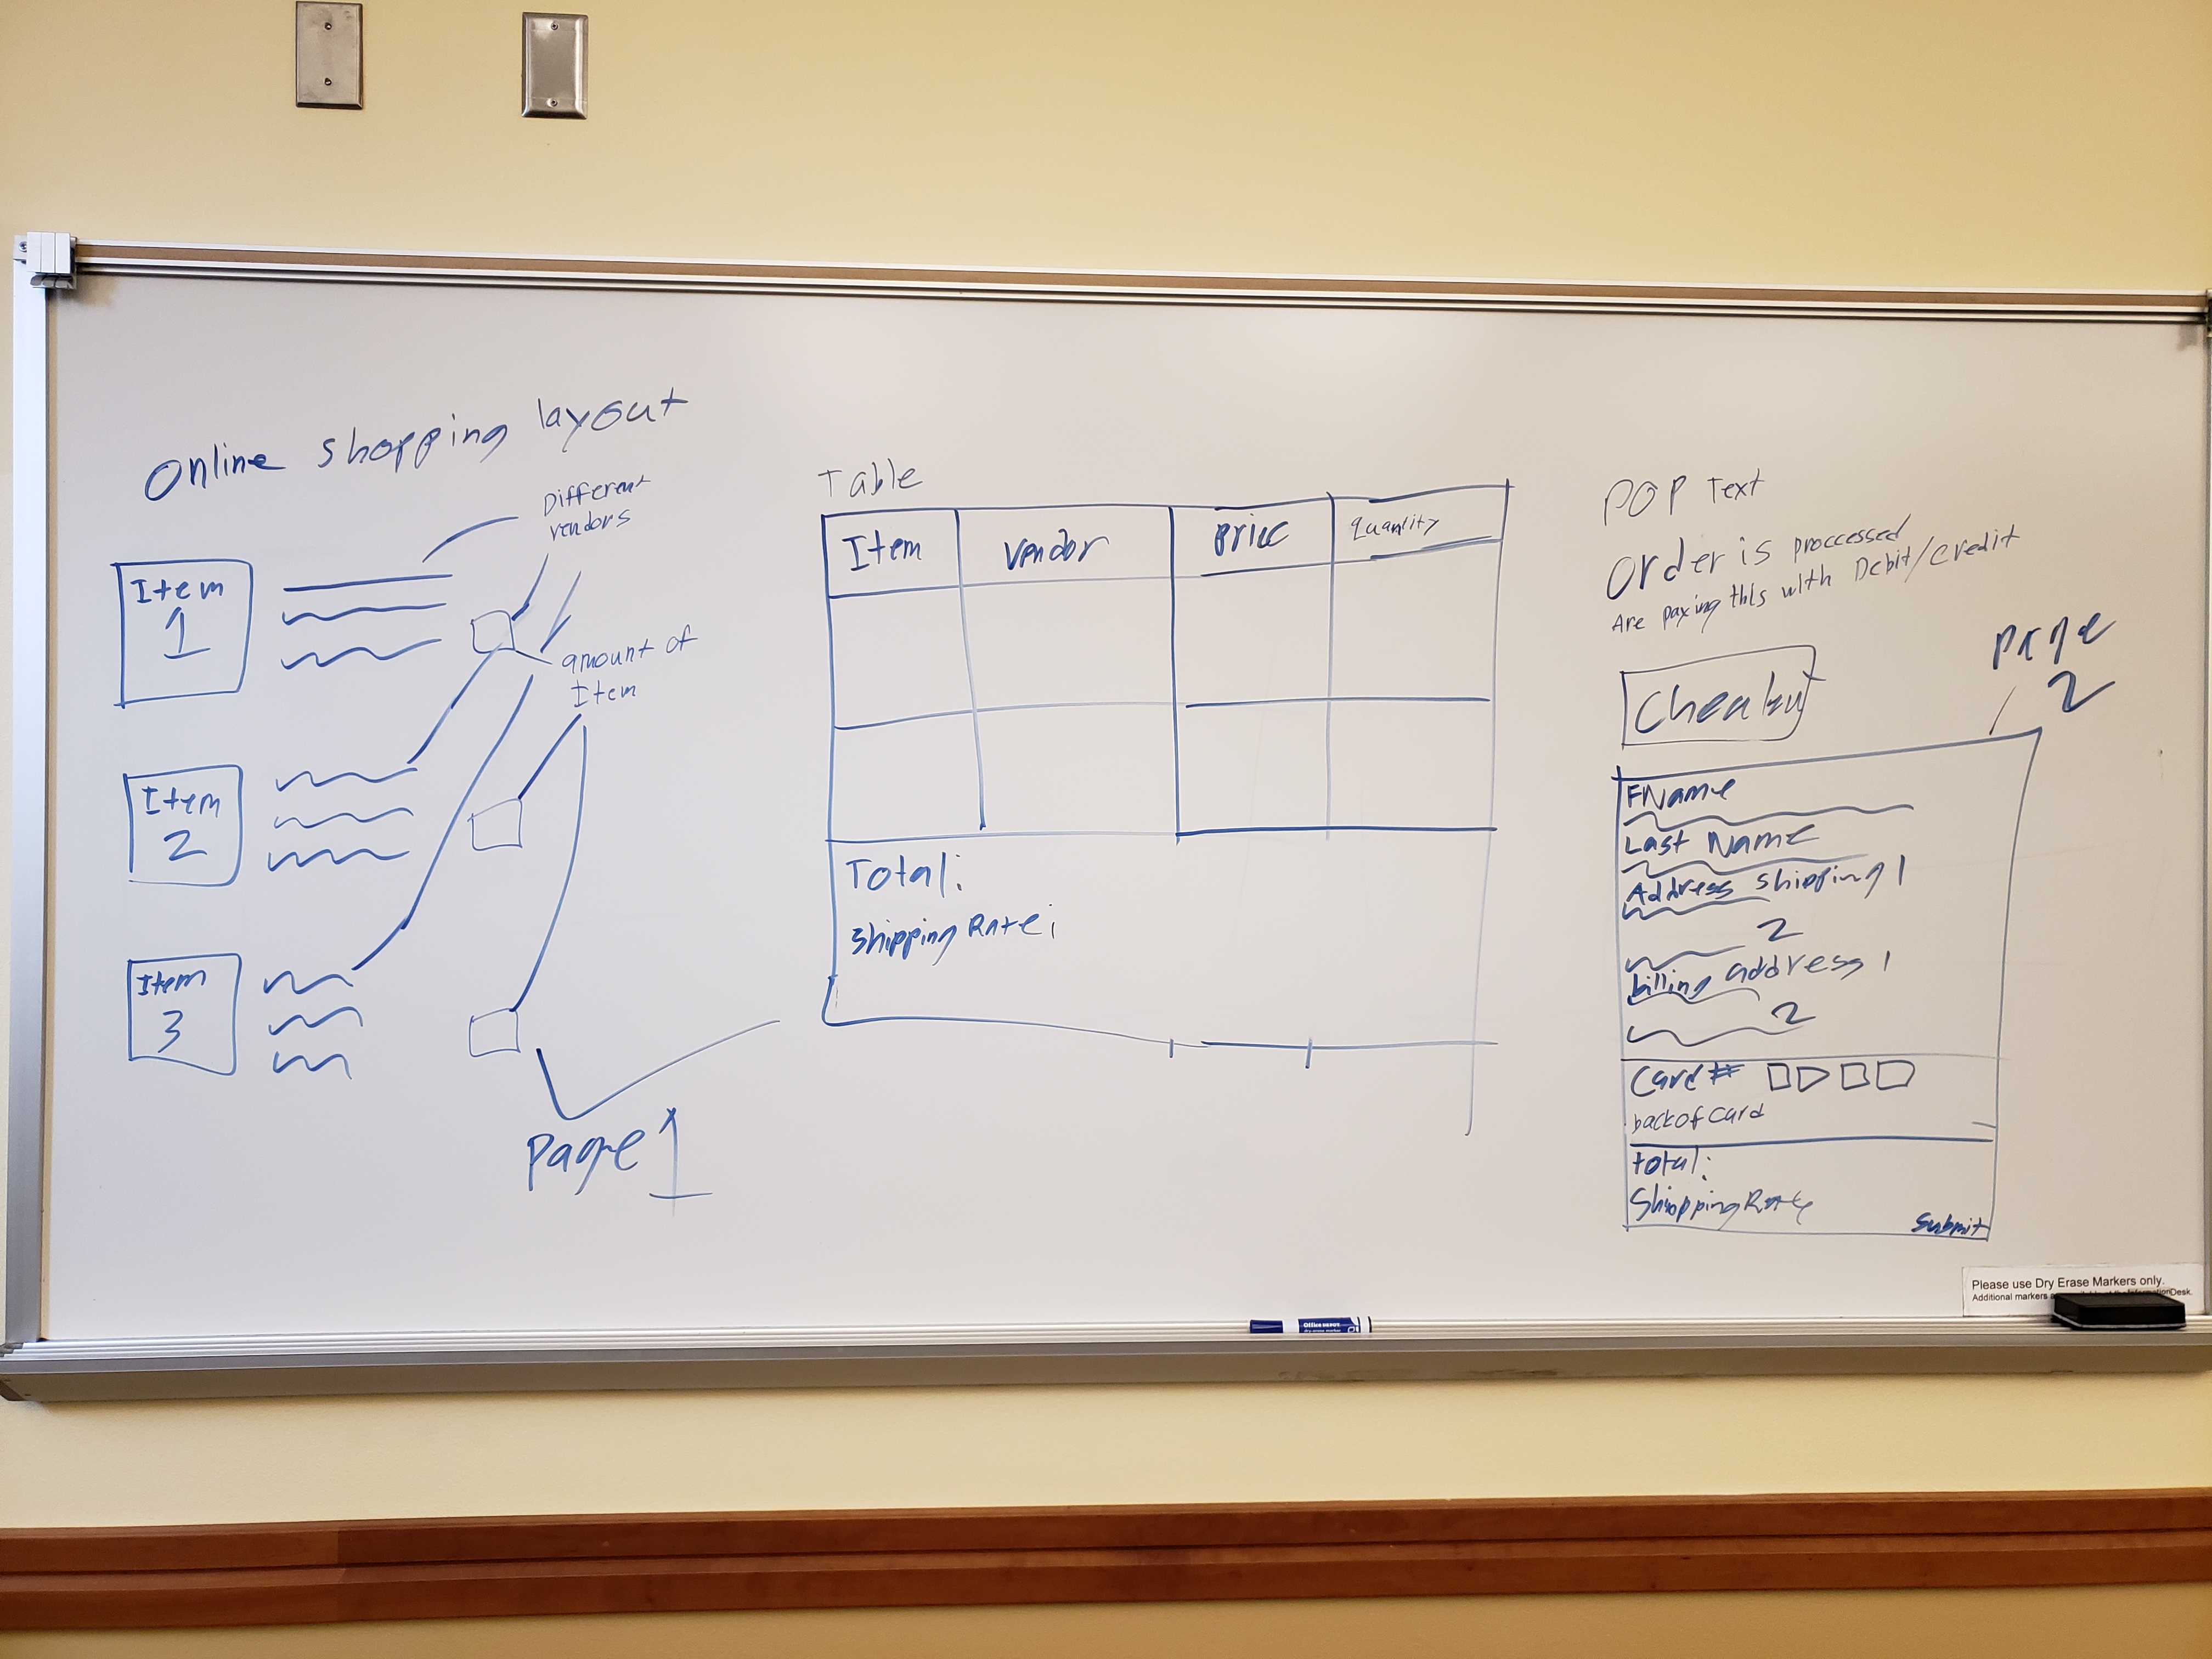 Online shopping layout
Different
vendors
Item
1
amount of
Item
Item
2
Item
3
Page 1
Table
Item Vendor Price Quantity
Total:
Shipping Rate:
POP Text
Order is proccessed
Are paying this with Debit/credit
Page
2
FName
Last Name
Address shipping 1
2
billing address 1
2
Card #
back of card
total:
Shipping Rate
Submit
Please use Dry Erase Markers only.
Additional markers Information Desk.
Office DEPOT
dry-erase marker